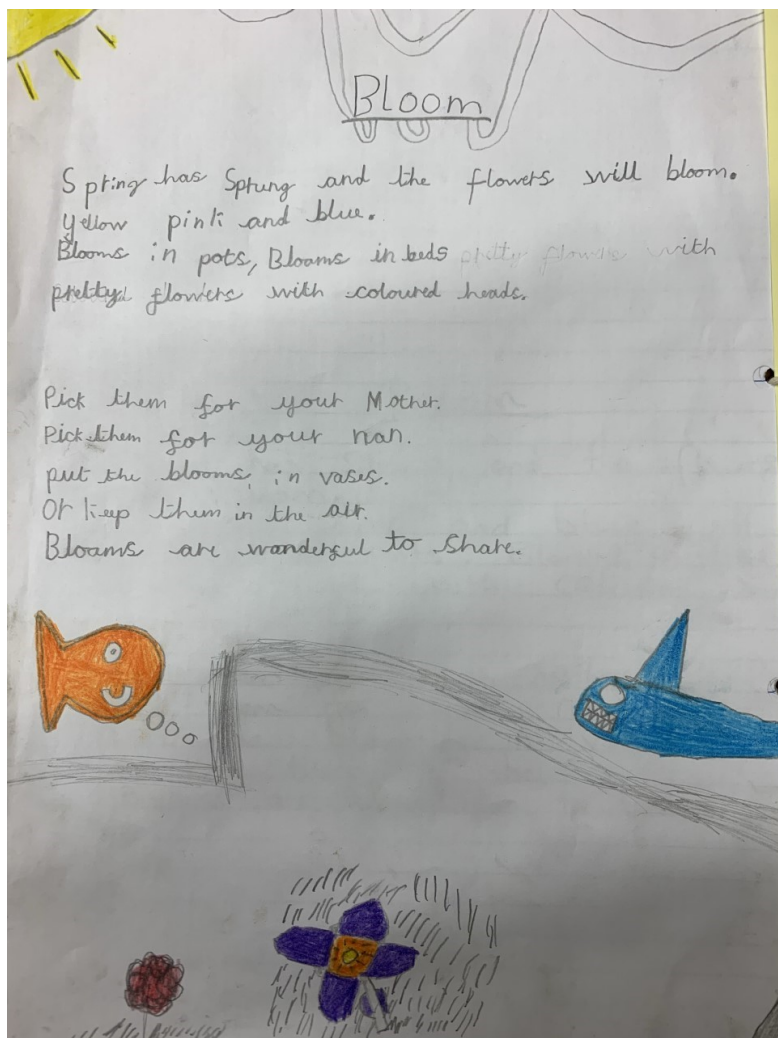 Bloom
Spring has Sprung and the flowers will bloom.
yellow pink and blue.
Blooms in pots, Blooms in beds pretty flowers with
pretty flowers with coloured heads.
Pick them for your Mother.
Pick them for your nan.
put the blooms in vases.
Or keep them in the air.
Blooms are wonderful to share.